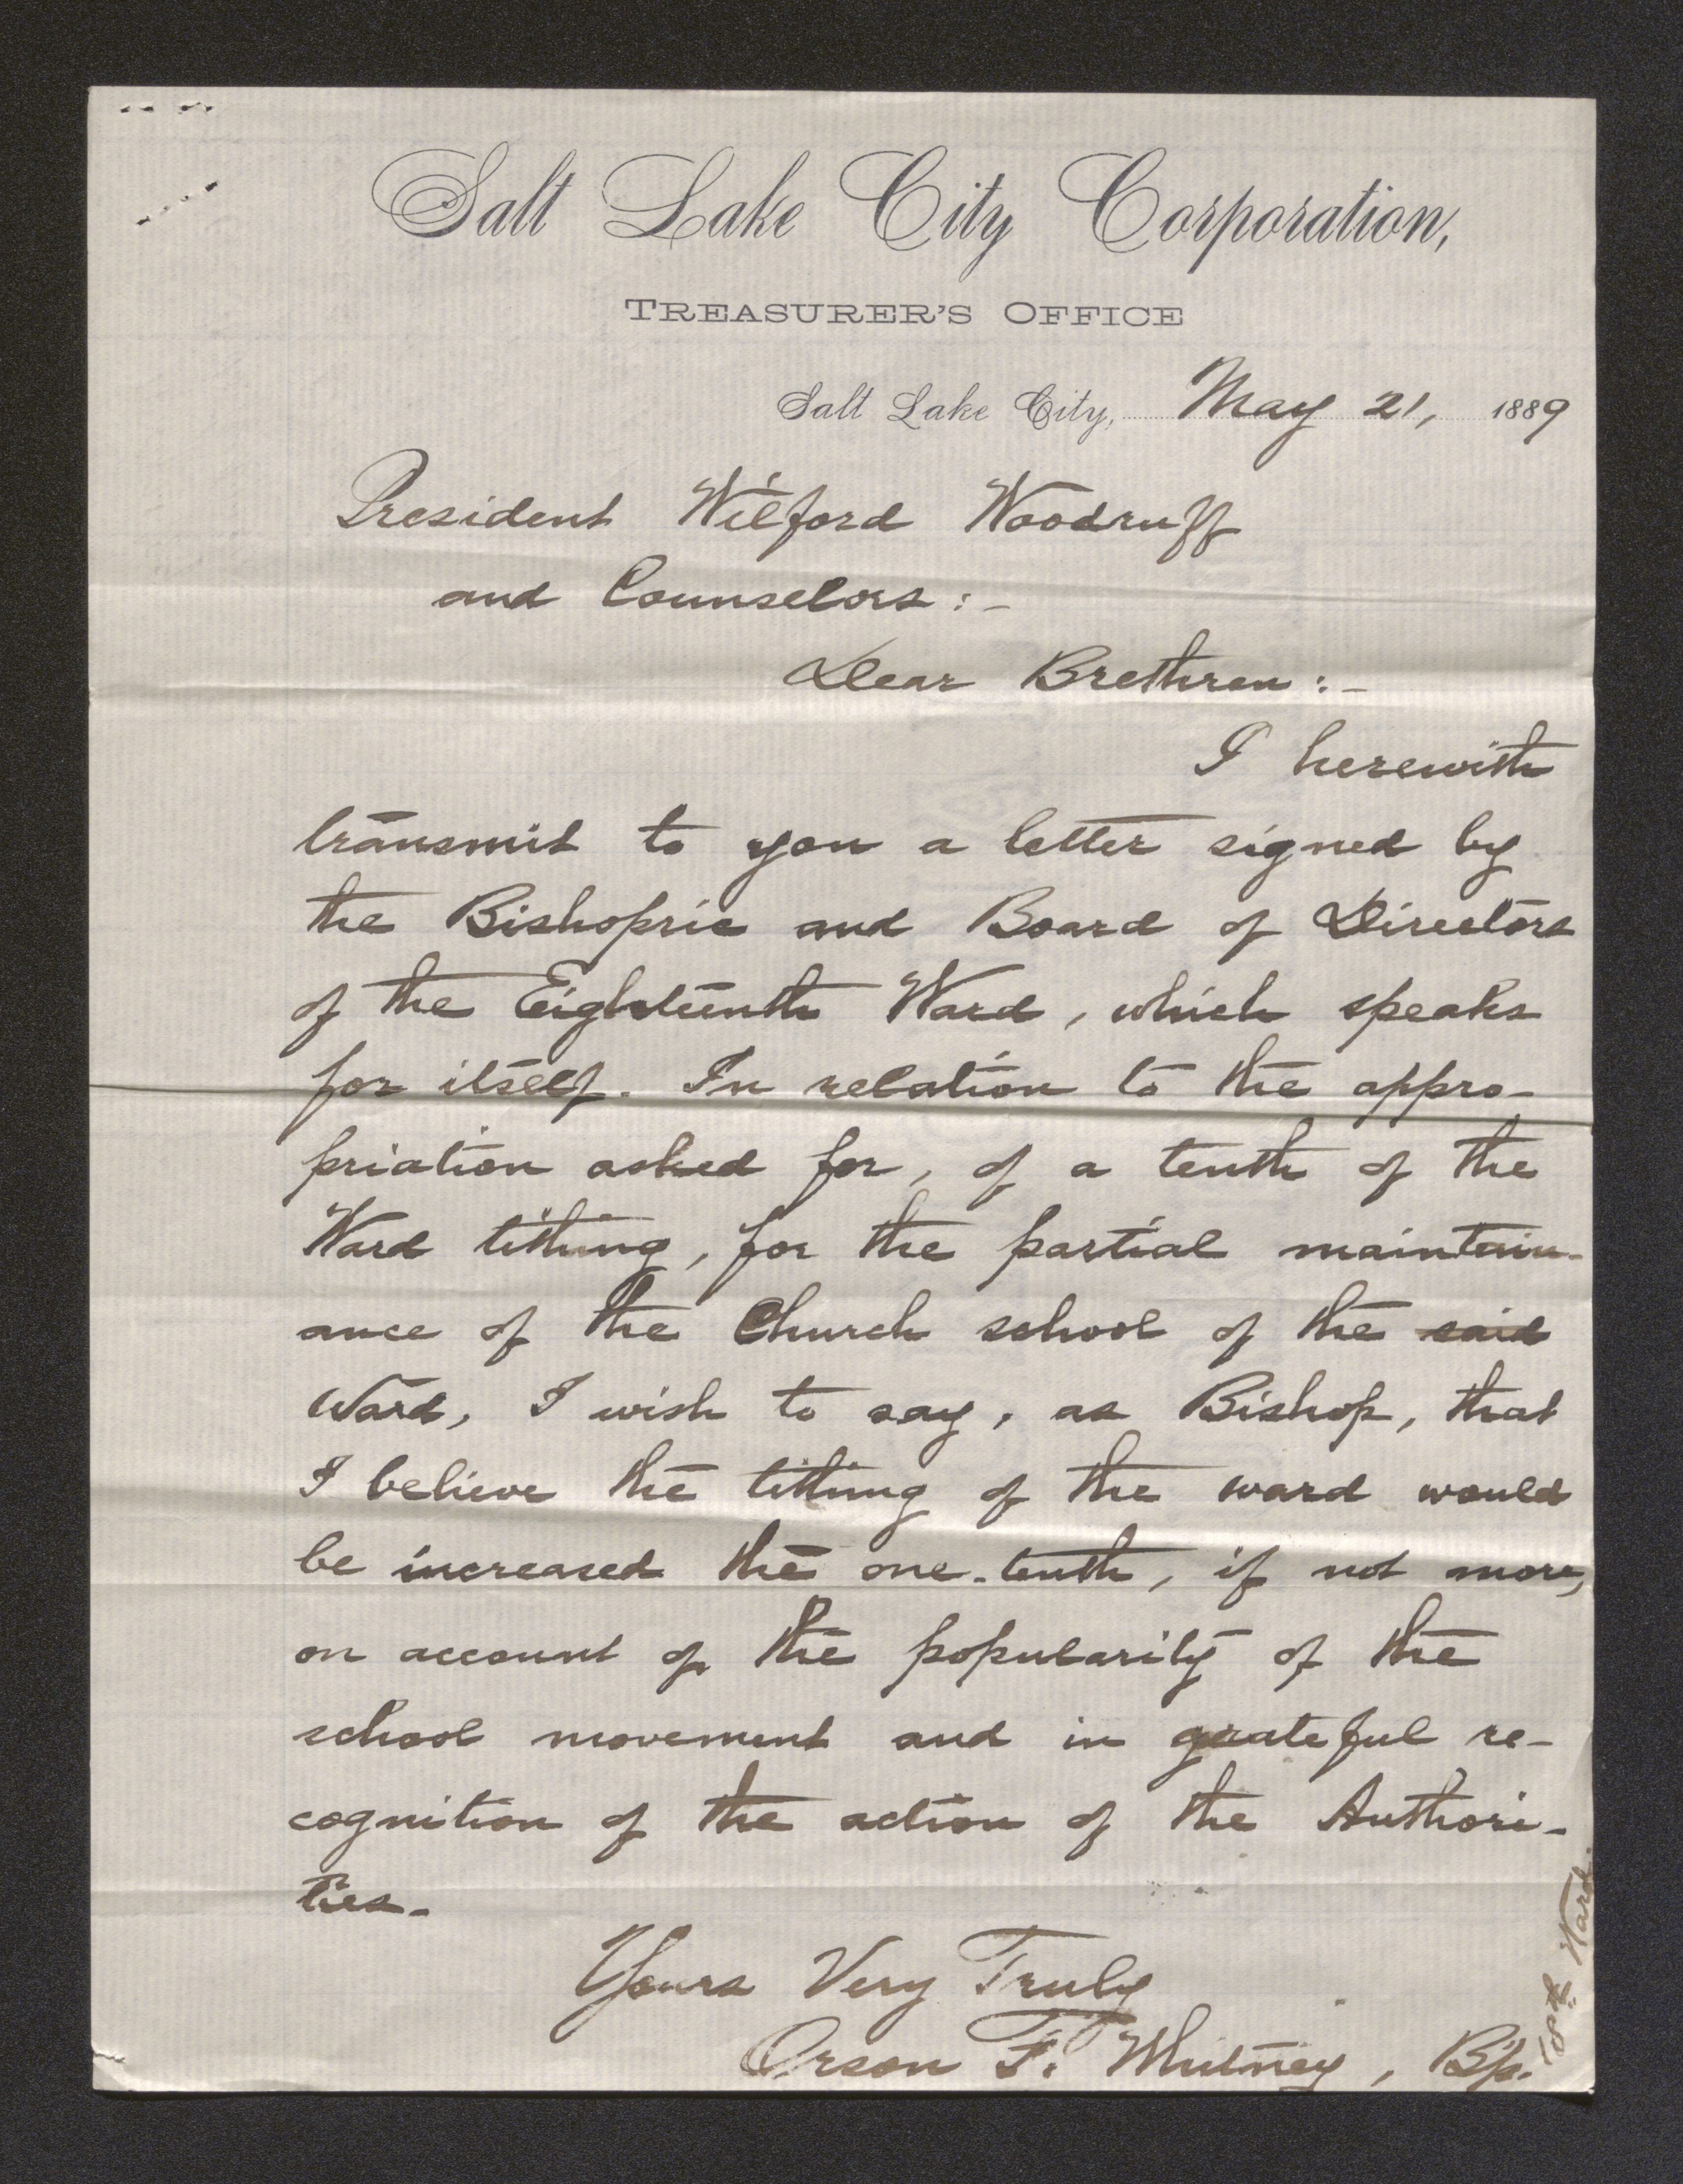 Salt Lake City Corporation,
TREASURER'S OFFICE
Salt Lake City, May 21, 1889
President Wilford Woodruff
and Counselors:-
Dear Brethren:-
I herewith
transmit to you a letter signed by
the Bishopric and Board of Directors
of the Eighteenth Ward, which speaks
for itself. In relation to the appro-
priation asked for, of a tenth of the
Ward tithing, for the partial maintain-
ance of the Church school of the said
Ward, I wish to say, as Bishop, that
I believe the tithing of the ward would
be increased the one-tenth, if not more,
on account of the popularity of the
school movement and in grateful re-
cognition of the action of the Authori-
ties.
Yours Very Truly
Orson F. Whitney, Bp.
18th Ward.